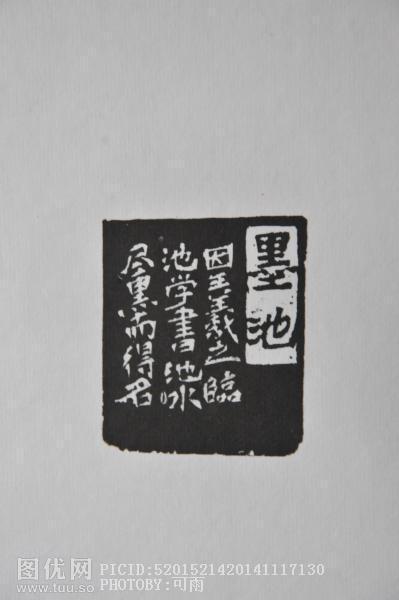 墨池
因王羲之臨
池学書池水
尽黑而得名
图优网
www.tuu.so
PICID:5201521420141117130
PHOTOBY:可雨